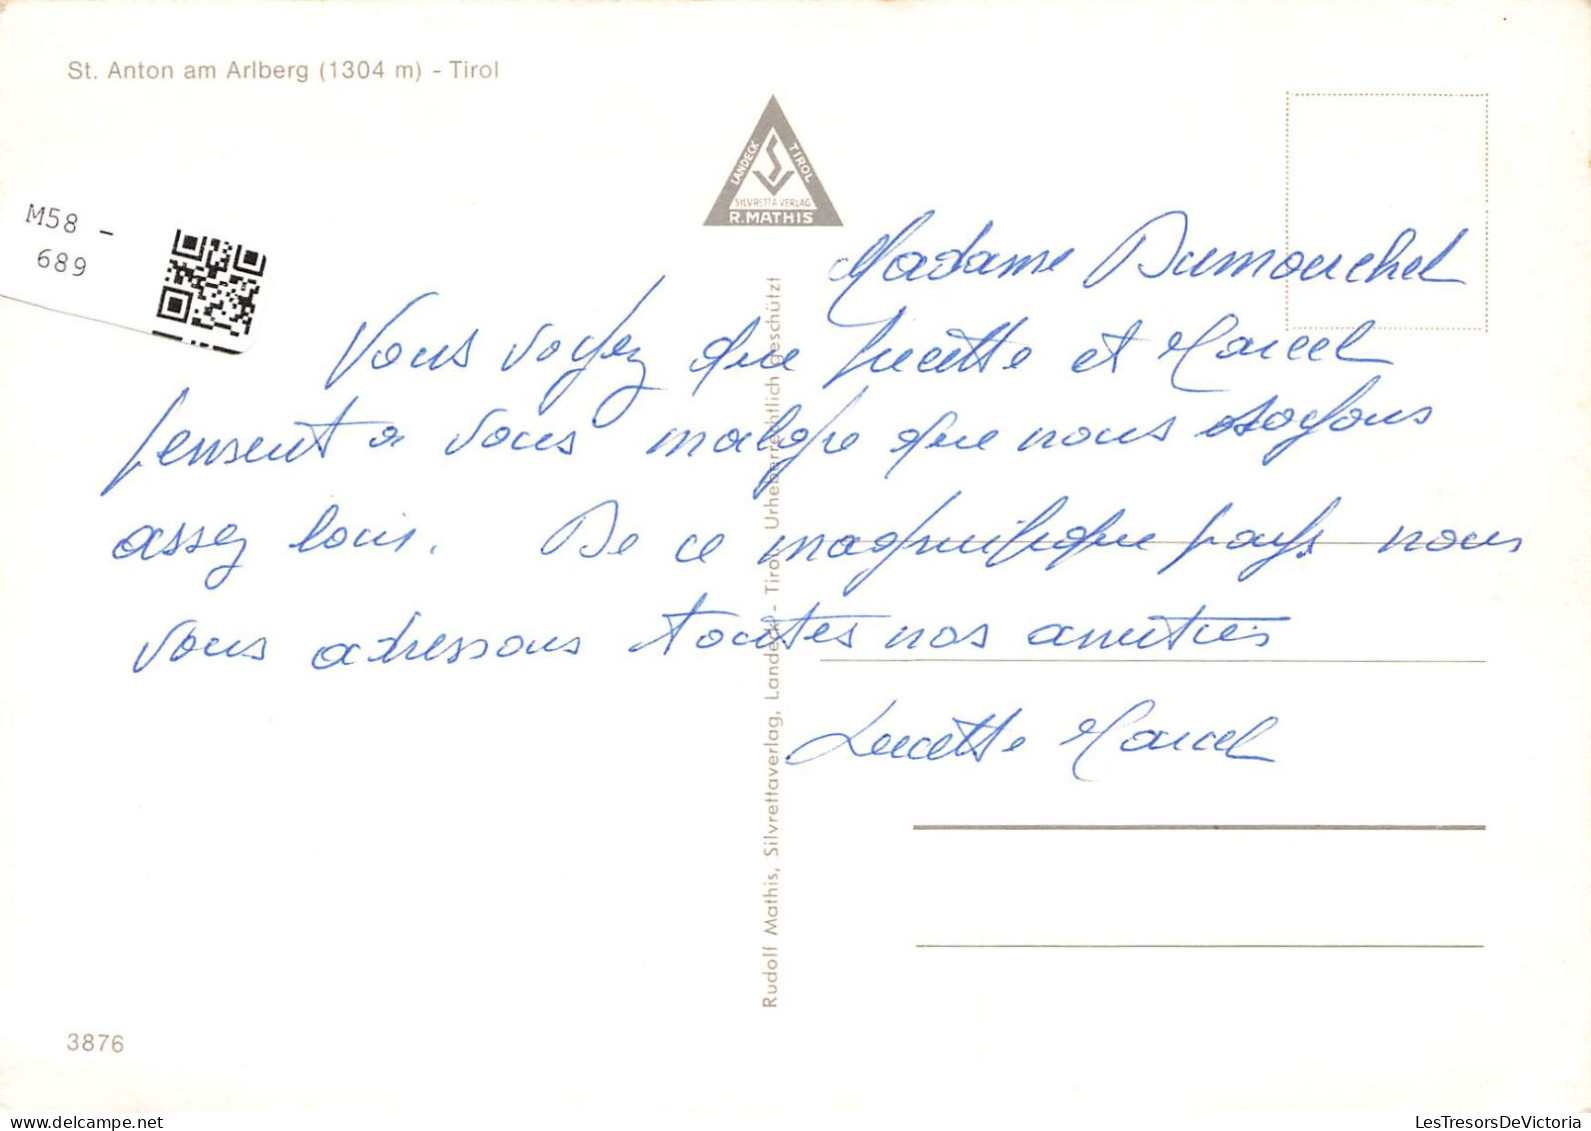 St. Anton am Arlberg (1304 m) - Tirol
LANDECK TIROL
SILVRETTA VERLAG
R. MATHIS
M58 -
689
Madame Dumouchel
Vous voyez que Lucette et Marcel
pensent a vous malgre que nous soyons
assez loin. De ce magnifique pays nous
vous adressons toutes nos amitiés
Lucette Marcel
Rudolf Mathis, Silvrettaverlag, Landeck - Tirol Urheberrechtlich geschützt
3876
LesTresorsDeVictoria